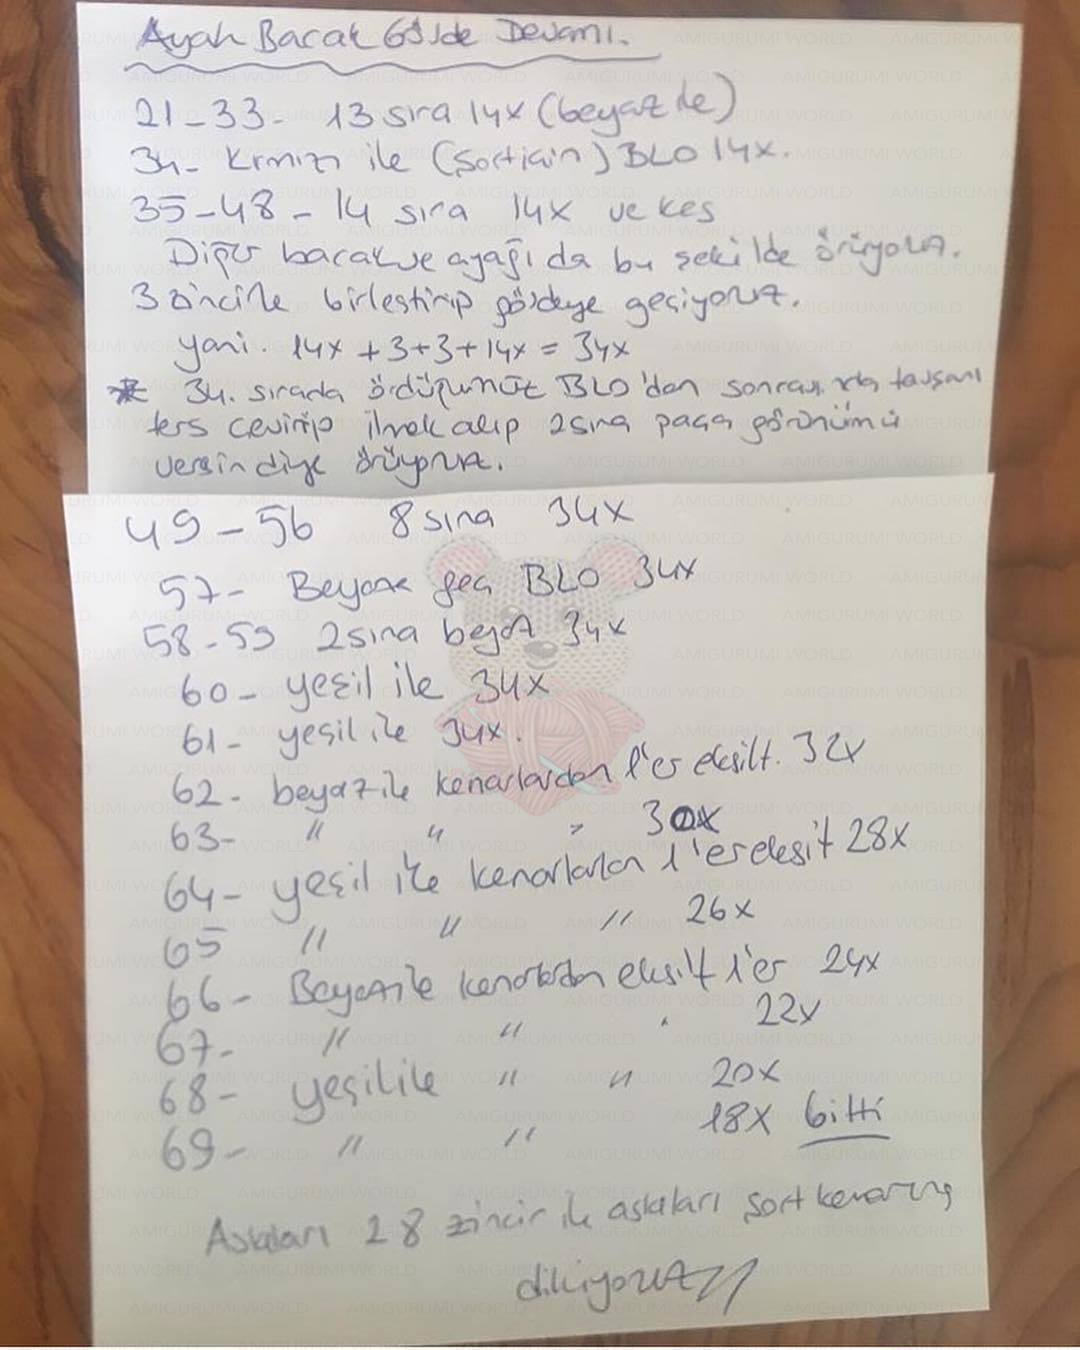 Ayak Bacak Gövde Devamı.
21-33- 13 sıra 14x (beyaz ile)
34- Kırmızı ile (Şort için) BLO 14x.
35-48- 14 sıra 14x ve kes
Diğer bacak ve ayağı da bu şekilde örüyoruz.
3 zincirle birleştirip gövdeye geçiyoruz.
yani. 14x +3+3+14x = 34x
* 34. sırada ördüğümüz BLO'dan sonrasında tavşanı
ters çevirip ilmek alıp 2 sıra paça görünümü
versin diye örüyoruz.
49-56 8 sıra 34x
57- Beyaza geç BLO 34x
58-59 2 sıra beyaz 34x
60- yeşil ile 34x
61- yeşil ile 34x.
62- beyaz ile kenarlardan 1'er eksilt. 32x
63- " " " 30x
64- yeşil ile kenarlardan 1'er eksilt 28x
65 " " " 26x
66- Beyaz ile kenarlardan eksilt 1'er 24x
67- " " 22x
68- yeşil ile " " 20x
69- " " 18x bitti
Askıları 28 zincir ile askıları şort kenarına
dikiyoruz //
AMIGURUMI WORLD